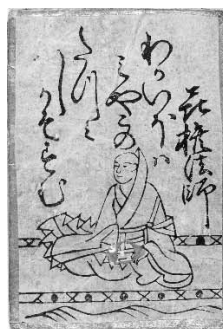 喜撰法師
わかいほハ
みやこの
たつミ
し
かそすむ